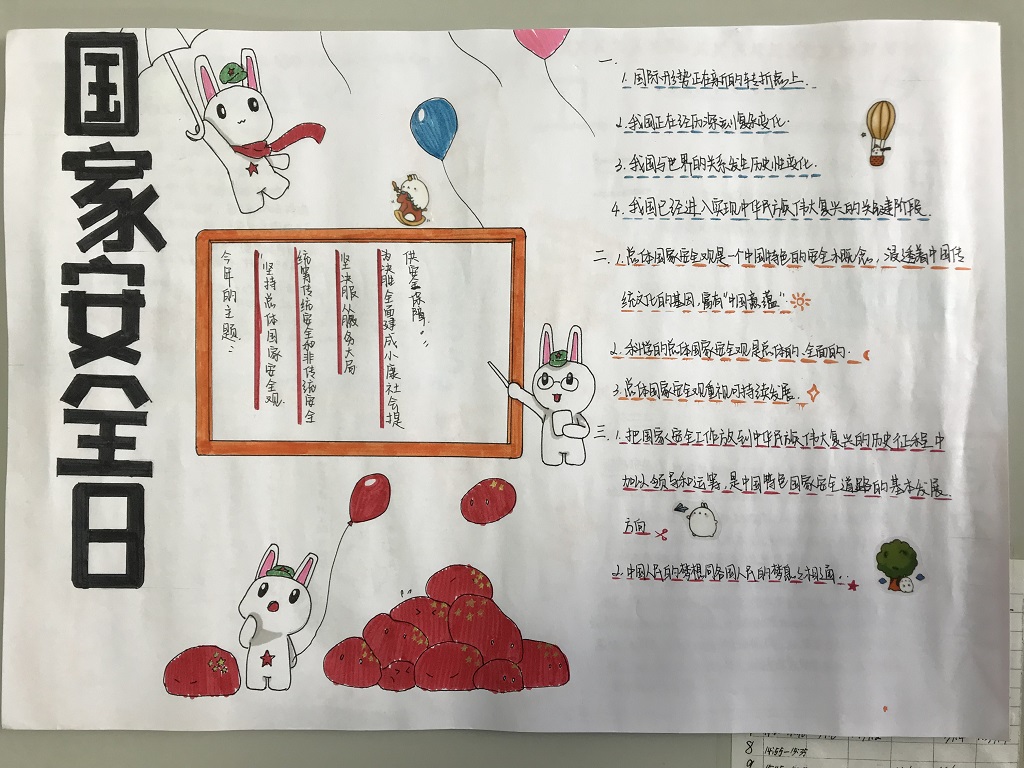 国家安全日
今年的主题：
“坚持总体国家安全观
统筹传统安全和非传统安全
坚决服从服务大局
为决胜全面建成小康社会提
供安全保障.”
一.
1. 国际形势正在新的转折点上.
2. 我国正在经历深刻复杂变化.
3. 我国与世界的关系发生历史性变化.
4. 我国已经进入实现中华民族伟大复兴的关键阶段.
二. 1. 总体国家安全观是一个中国特色的安全概念, 浸透着中国传
统文化的基因, 富有“中国意蕴”
2. 科学的总体国家安全观是总体的、全面的.
3. 总体国家安全观重视可持续发展.
三. 1. 把国家安全工作放到中华民族伟大复兴的历史征程中
加以领导和运筹, 是中国特色国家安全道路的基本发展
方向
2. 中国人民的梦想同各国人民的梦想息息相通.
8 14:55-15:35
9